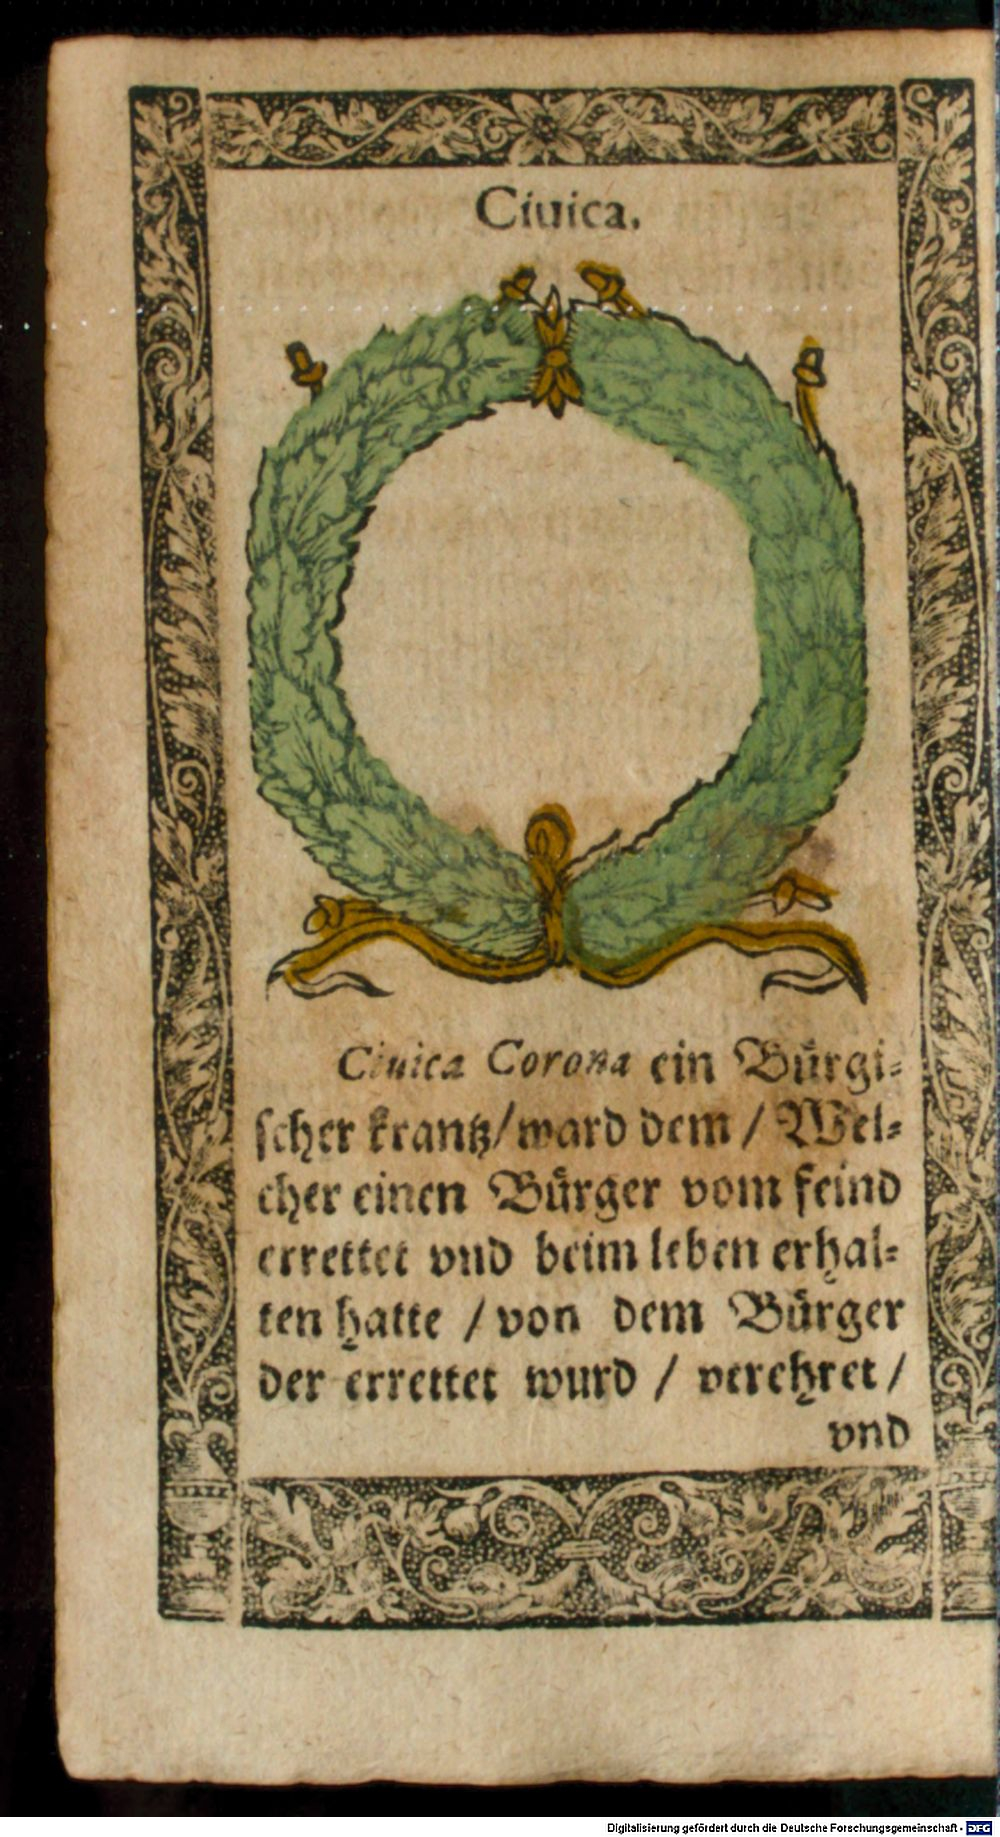 Ciuica.
Ciuica Corona ein Bürgi⸗
scher krantz/ ward dem / Wel⸗
cher einen Bürger vom feind
errettet vnd beim leben erhal⸗
ten hatte / von dem Bürger
der errettet wurd / verehret /
vnd
Digitalisierung gefördert durch die Deutsche Forschungsgemeinschaft - DFG